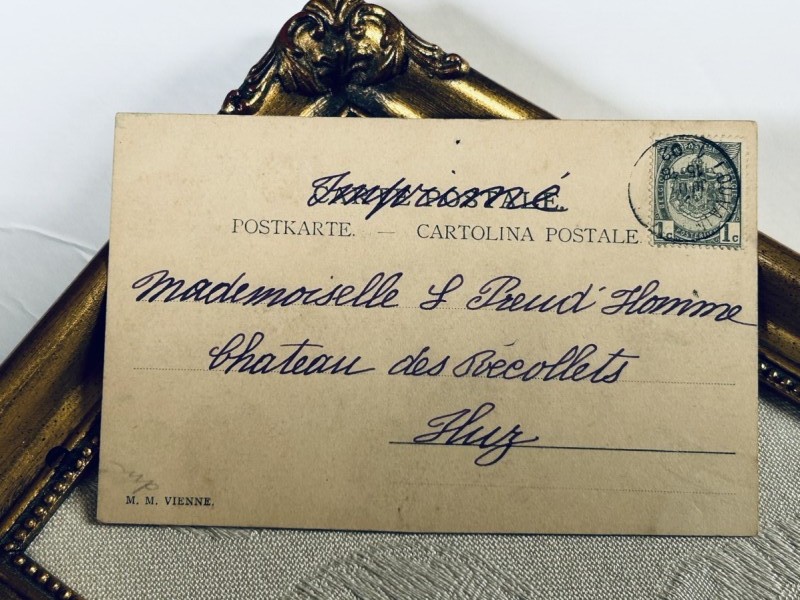 Imprimé
CARTE POSTALE.
POSTKARTE. — CARTOLINA POSTALE.
1c 1c
Mademoiselle L Preud'Homme
Chateau des Récollets
Huy
M. M. VIENNE.